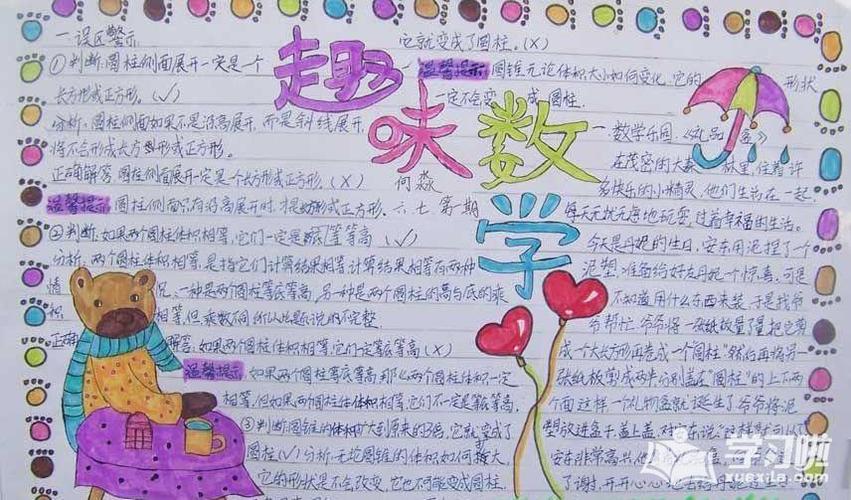 趣味数学
何淼
六.七.第一期
一.误区警示
①判断:圆柱侧面展开一定是一个
长方形或正方形。(✓)
分析:圆柱侧面如果不是沿高展开,而是斜线展开,
将不会形成长方形或正方形。
正确解答:圆柱侧面展开一定是个长方形或正方形。(X)
温馨提示 圆柱侧面只有沿高展开时,才是长方形或正方形。
②判断:如果两个圆柱体积相等,它们一定是等底等高(✓)
分析:两个圆柱体积相等,是指它们计算结果相等,计算结果相等有两种
情况,一种是两个圆柱等底等高,另一种是两个圆柱的高与底的乘
积相等,但乘数不同,所以此题所说的不完整
正确解答:如果两个圆柱体积相等,它们一定等底等高(X)
温馨提示 如果两个圆柱等底等高,那么两个圆柱体积一定
相等,但如果两个圆柱体体积相等,它们不一定是等底等高。
③判断:圆锥的体积扩大到原来的3倍,它就变成了
圆柱(✓)分析:无论圆锥的体积如何扩大,
它的形状是不会改变,它也不可能变成圆柱.
它就变成了圆柱。(X)
温馨提示 圆锥无论体积大小如何变化,它的形状
一定不会变成圆柱.
一.数学乐园.《礼品盒》
在茂密的大森林里住着许
多快乐的小精灵,他们生活在一起,
每天无忧无虑地玩耍,过着幸福的生活。
今天是丹妮的生日,安东用泥捏了一个
泥塑,准备给好友丹妮一个惊喜,可是
不知道用什么东西来装,于是找爷
爷帮忙,爷爷将一张纸板量了量把它剪
成一个大长方形再卷成一个"圆柱"然后再将另一
张纸板剪成两半分别盖在"圆柱"的上下两
个面,这样一个礼物盒就诞生了,爷爷将泥
塑放进盒子,盖上盖,对安东说:"这样就可以了
安东非常高兴,他
了谢,开开心心地去
学习啦
xuexila.com